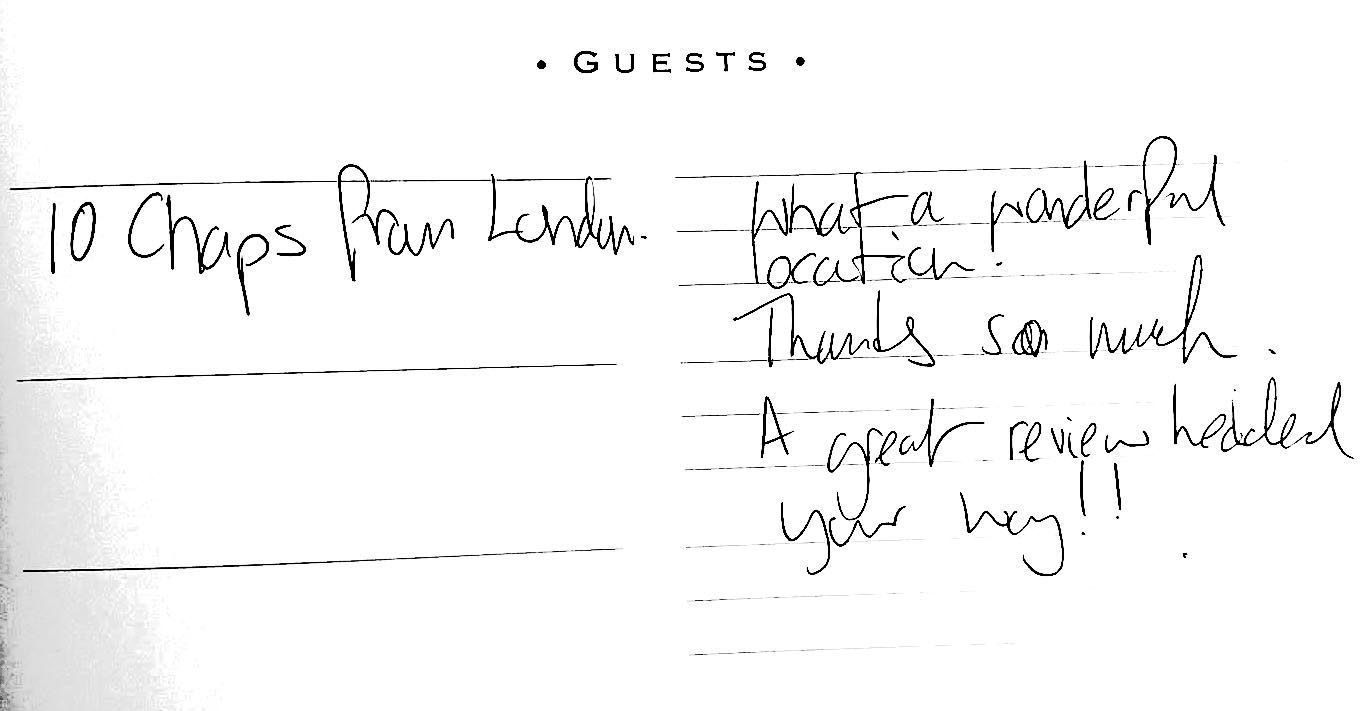 • GUESTS •
10 Chaps from London.
What a wonderful
location.
Thanks so much.
A great review headed
your way!!